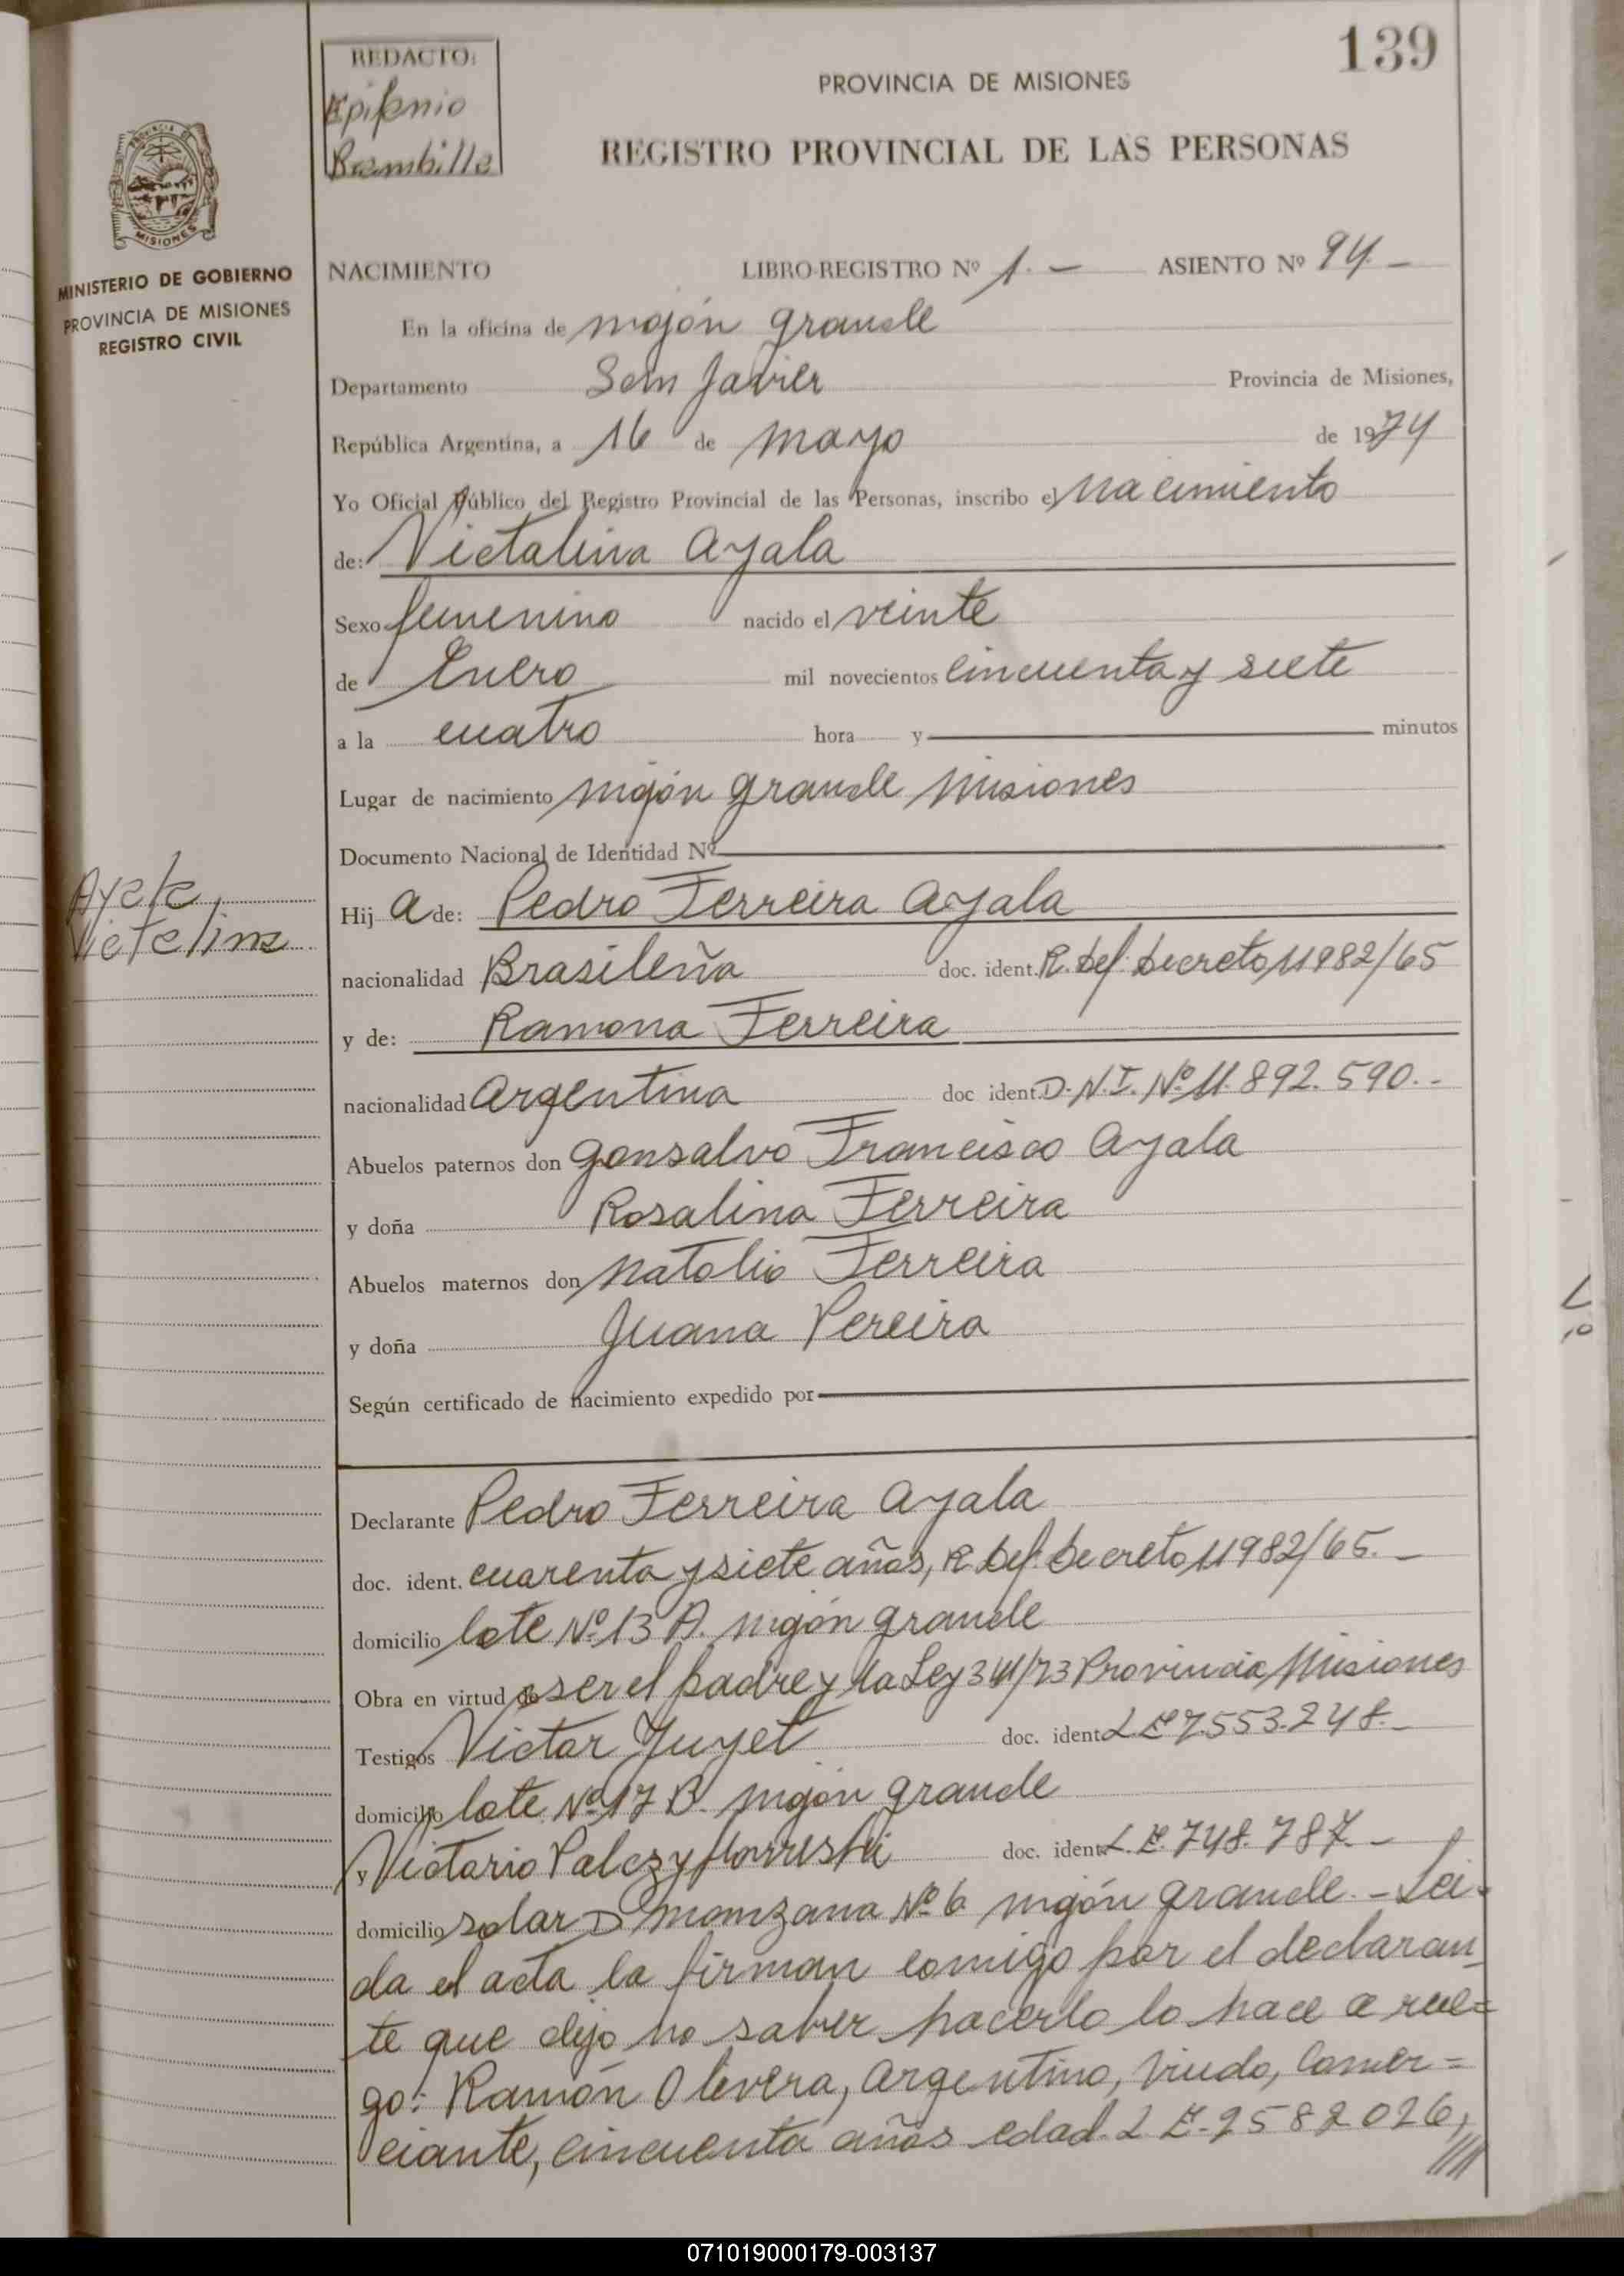 139
REDACTO:
Epifanio
Brambilla
PROVINCIA DE MISIONES
REGISTRO PROVINCIAL DE LAS PERSONAS
PROVINCIA DE
MISIONES
MINISTERIO DE GOBIERNO
PROVINCIA DE MISIONES
REGISTRO CIVIL
NACIMIENTO LIBRO-REGISTRO Nº 1.- ASIENTO Nº 94.-
En la oficina de mojón grande
Departamento San Javier Provincia de Misiones,
República Argentina, a 16 de mayo de 1974
Yo Oficial Público del Registro Provincial de las Personas, inscribo el nacimiento
de: Victalina Ayala
Sexo femenino nacido el veinte
de Enero mil novecientos cincuenta y siete
a la cuatro hora y minutos
Lugar de nacimiento mojón grande Misiones
Documento Nacional de Identidad Nº
Ayala
Victalina
Hij a de: Pedro Ferreira Ayala
nacionalidad Brasileña doc. ident. R. Def. Decreto 11982/65
y de: Ramona Ferreira
nacionalidad argentina doc ident. D.N.I. Nº 11.892.590.-
Abuelos paternos don Gonsalvo Francisco Ayala
y doña Rosalina Ferreira
Abuelos maternos don Natolio Ferreira
y doña Juana Pereira
Según certificado de nacimiento expedido por
Declarante Pedro Ferreira Ayala
doc. ident. cuarenta y siete años, R. Def. Decreto 11982/65.-
domicilio lote Nº 13 A. mojón grande
Obra en virtud de ser el padre y la Ley 341/73 Provincia Misiones
Testigos Victor Yuyet doc. ident L E 7.553.248.-
domicilio lote Nº 17 B. mojón grande
y Victorio doc. ident L.E. 748.787.-
domicilio solar D manzana Nº 6 mojón grande.- Lei-
da el acta la firman comigo por el declaran
te que dijo no saber hacerlo lo hace a rue=
go: Ramón Olevera, argentino, viudo, Comer=
ciante, cincuenta años edad. L E. 2582026,
////
071019000179-003137